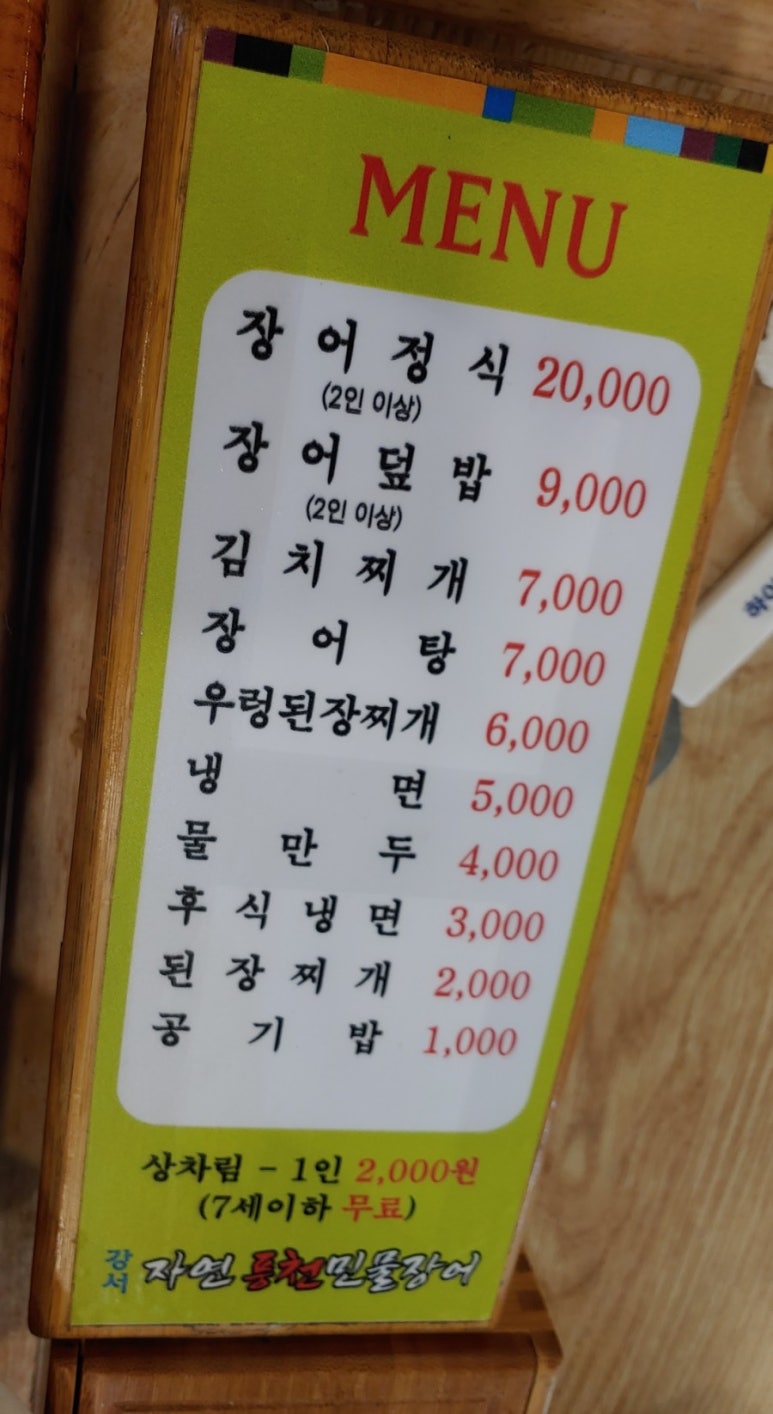 MENU
장어정식 20,000
(2인 이상)
장어덮밥 9,000
(2인 이상)
김치찌개 7,000
장어탕 7,000
우렁된장찌개 6,000
냉면 5,000
물만두 4,000
후식냉면 3,000
된장찌개 2,000
공기밥 1,000
상차림 - 1인 2,000원
(7세이하 무료)
강서 자연풍천민물장어
하이